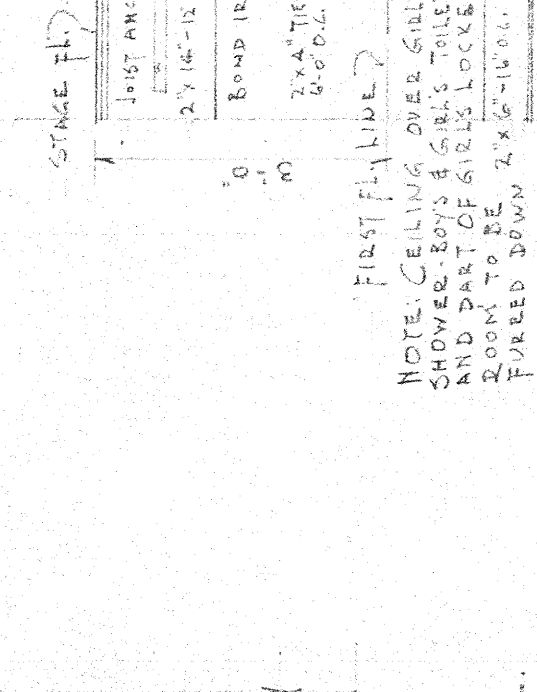 STAGE FL.
JOIST ANC
2"X14"-12
BOND IR
2"X4" TIE
6'-0" O.C.
3'-0"
FIRST FL. LINE
NOTE: CEILING OVER GIRL
SHOWER-BOY'S & GIRL'S TOILE
AND PART OF GIRLS LOCKE
ROOM TO BE
FURRED DOWN
2"X6"-16"O.C.